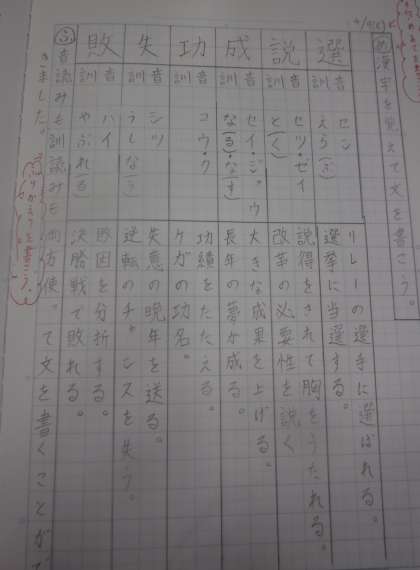 漢字を覚えて文を書こう。
選
音 セン
訓 えら(ぶ)
リレーの選手に選ばれる。
選挙に当選する。
説
音 セツ・ゼイ
訓 と(く)
説得をされて胸をうたれる。
改革の必要性を説く
成
音 セイ・ジョウ
訓 な(る)・な(す)
大きな成果を上げる。
長年の夢が成る。
功
音 コウ・ク
訓
功績をたたえる。
ケガの功名。
失
音 シツ
訓 うしな(う)
失意の晩年を送る。
逆転のチャンスを失う。
敗
音 ハイ
訓 やぶ(れる)
敗因を分析する。
決勝戦で敗れる。
ふ 音読みも訓読みも両方使って文を書くことがで
きました。